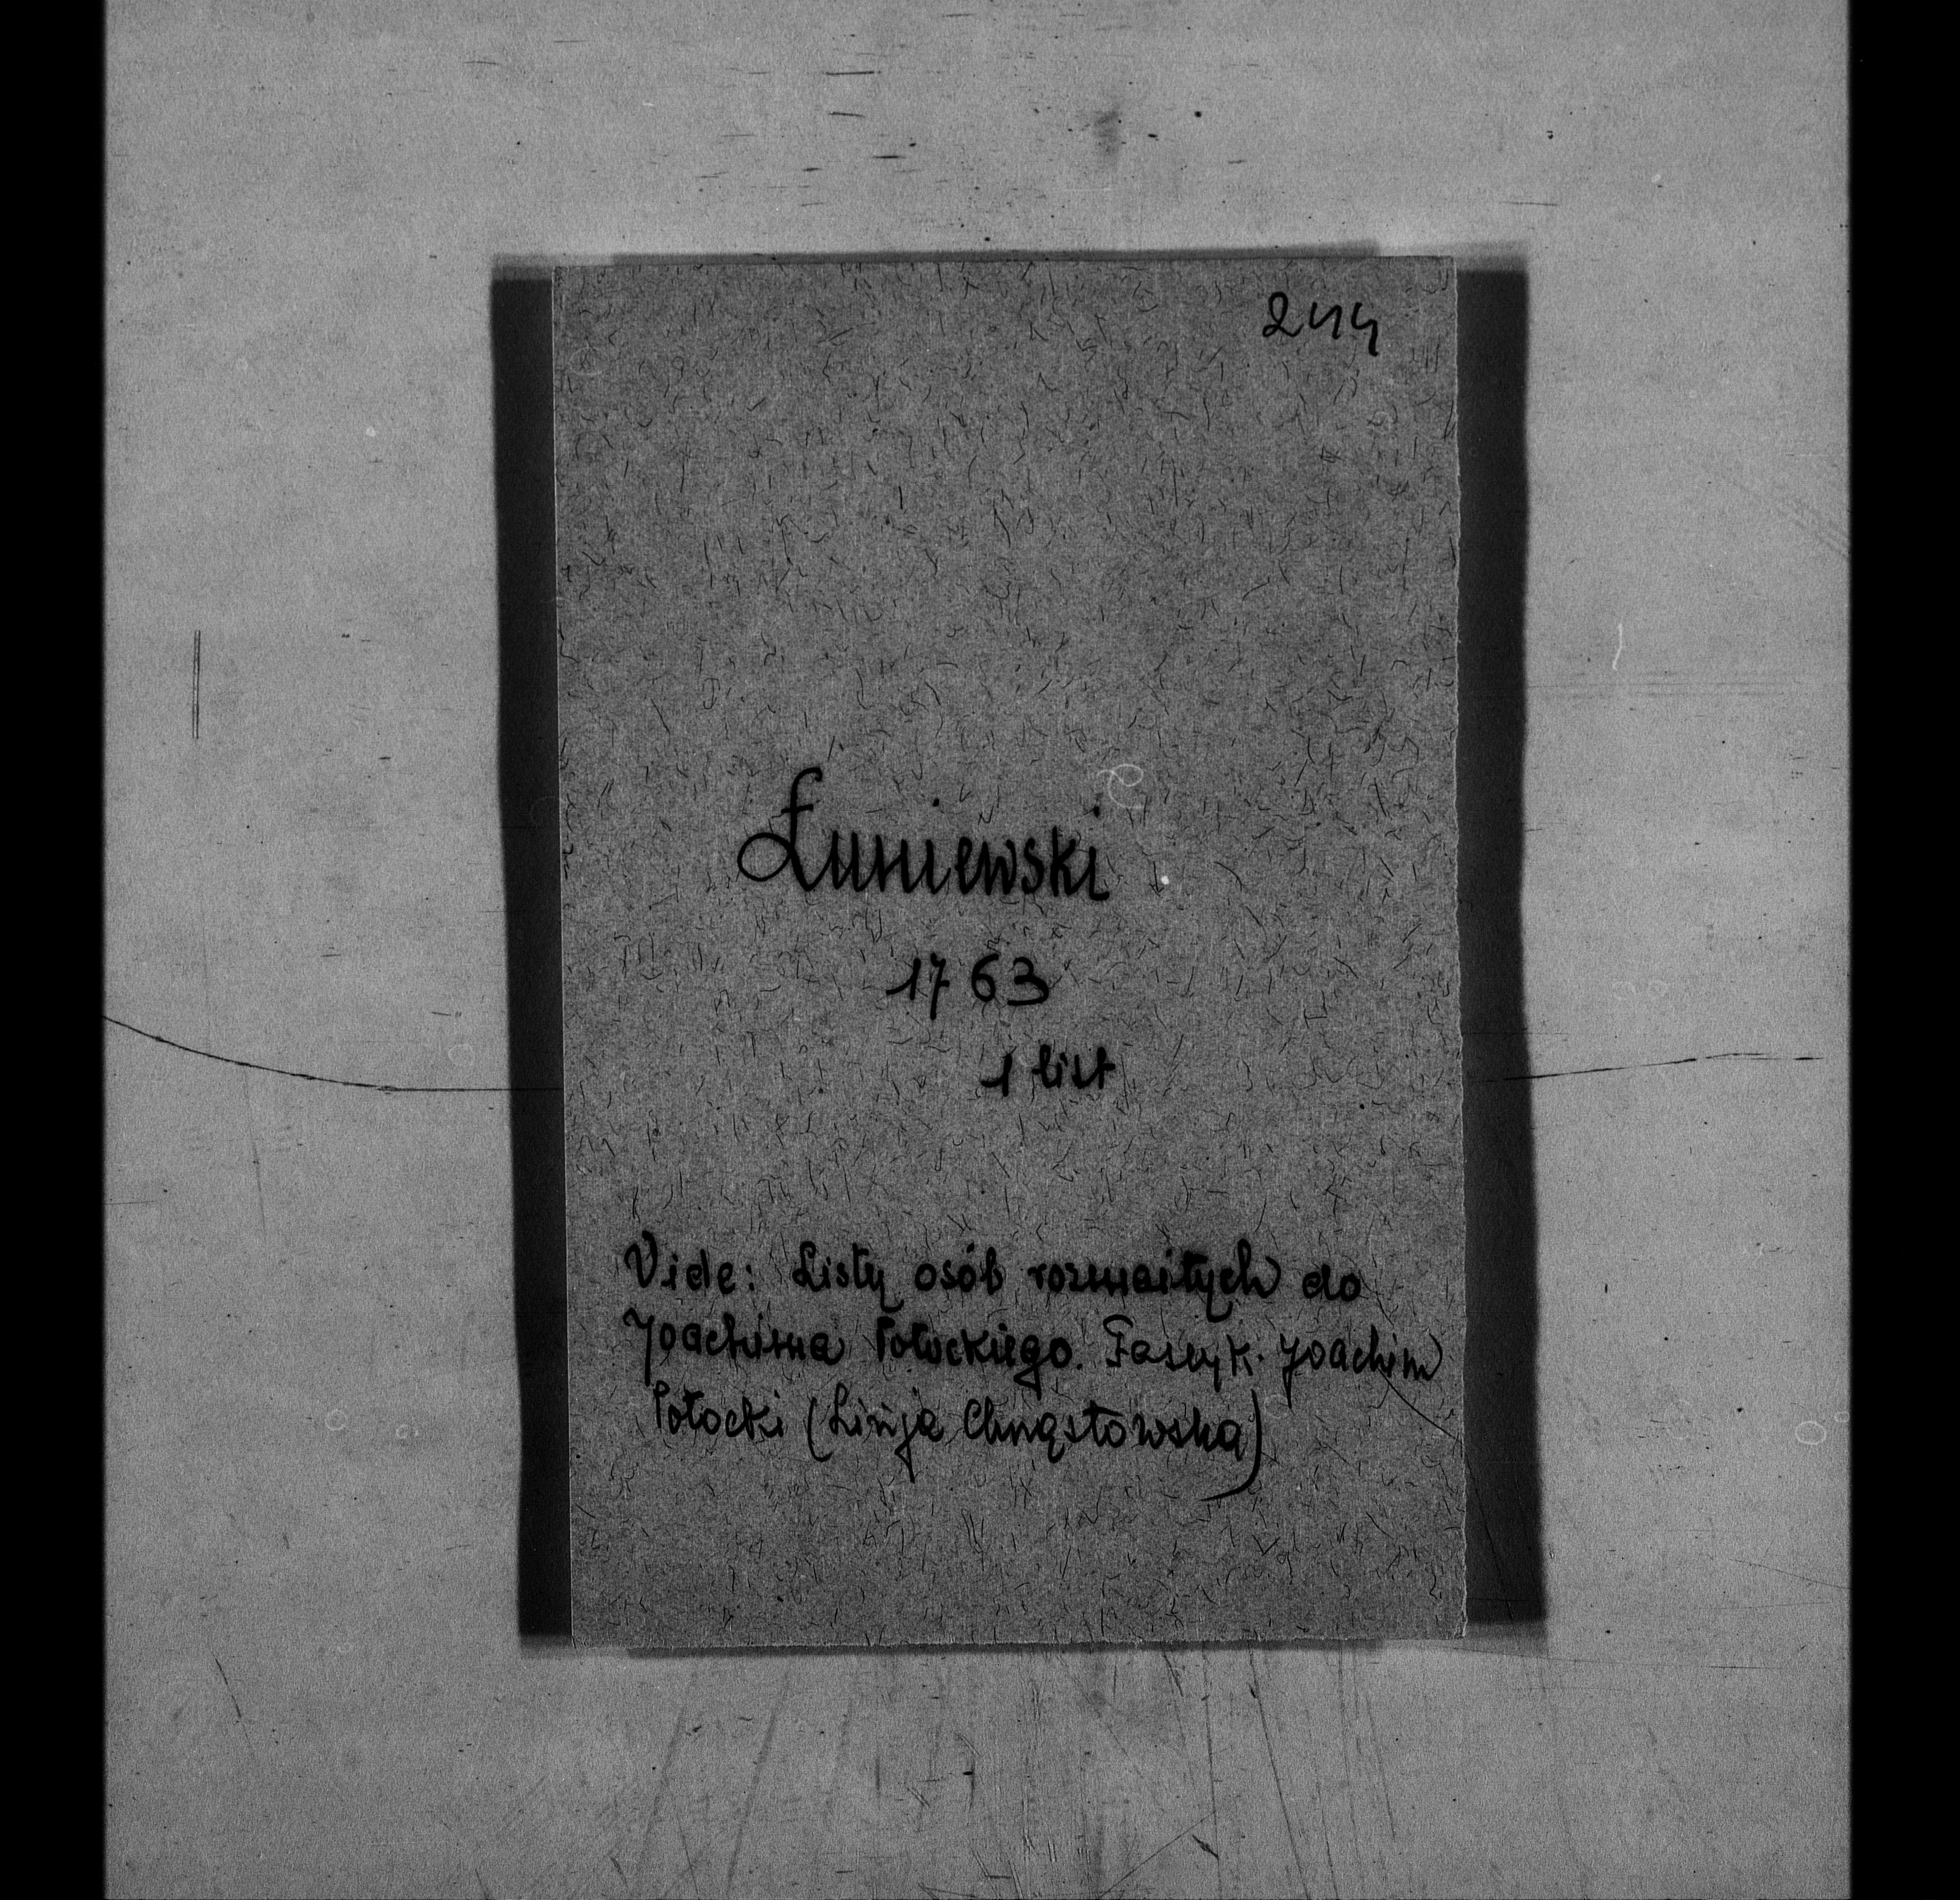 244
Łuniewski
1763
1 list
Vide: Listy osób rozmaitych do
Joachima Potockiego. Fascyk. Joachim
Potocki (Linja Chrząstowska)